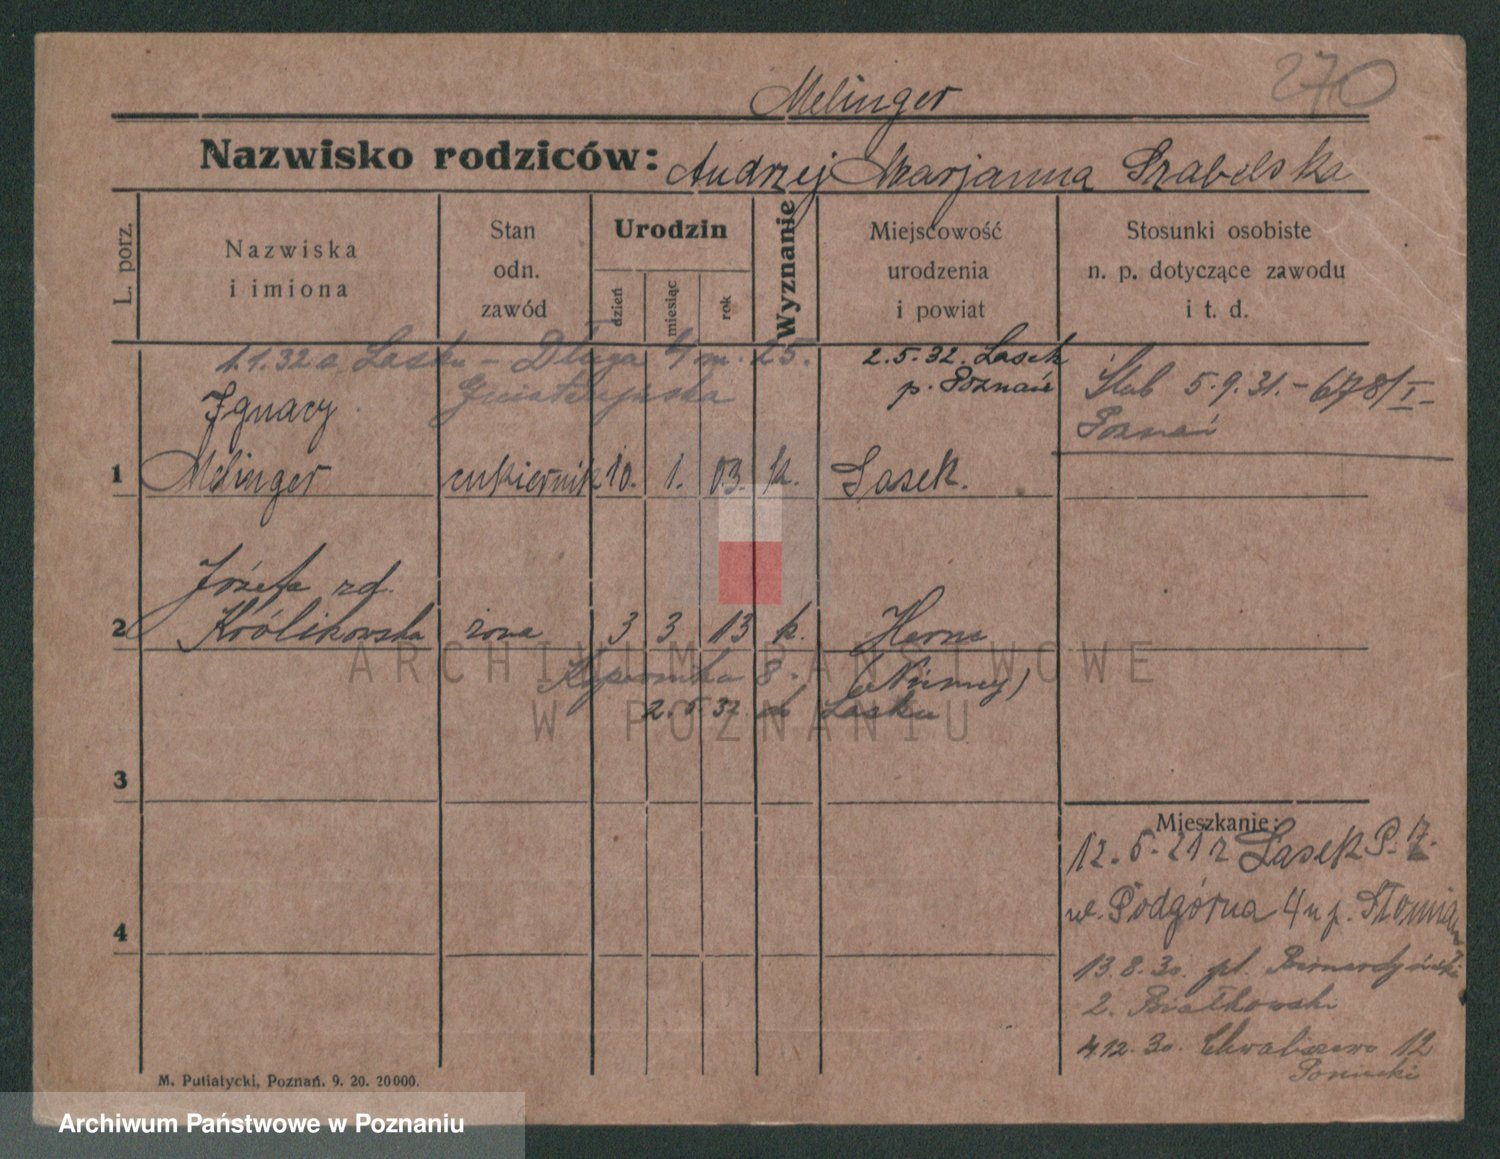 270
Melinger
Nazwisko rodziców: Andrzej Marjanna Szabelska
L. porz.
Nazwiska
i imiona
Stan
odn.
zawód
Urodzin
dzień
miesiąc
rok
Wyznanie
Miejscowość
urodzenia
i powiat
Stosunki osobiste
n. p. dotyczące zawodu
i t. d.
1.1.32 a Lasku - Długa 4 m. 25.
2.5.32. Lasek
p. Poznań
Ślub 5.9.31. - 678/I -
Poznań
1 Ignacy
Melinger cukiernik 10. 1. 03. k. Lasek.
2 Józefa rd.
Królikowska żona 3 3 13 k. Herne
(Niemcy)
8.
2.5.32 do Lasku
3
4
Mieszkanie:
12.5.21 z Lasek P. 17.
ul. Podgórna 4 u p.
13.8.30. pl. Bernardyński
2. Białkowski
4.12.30. Chwaliszewo 12
M. Putiatycki, Poznań. 9. 20. 20000.
ARCHIWUM PAŃSTWOWE
W POZNANIU
Archiwum Państwowe w Poznaniu